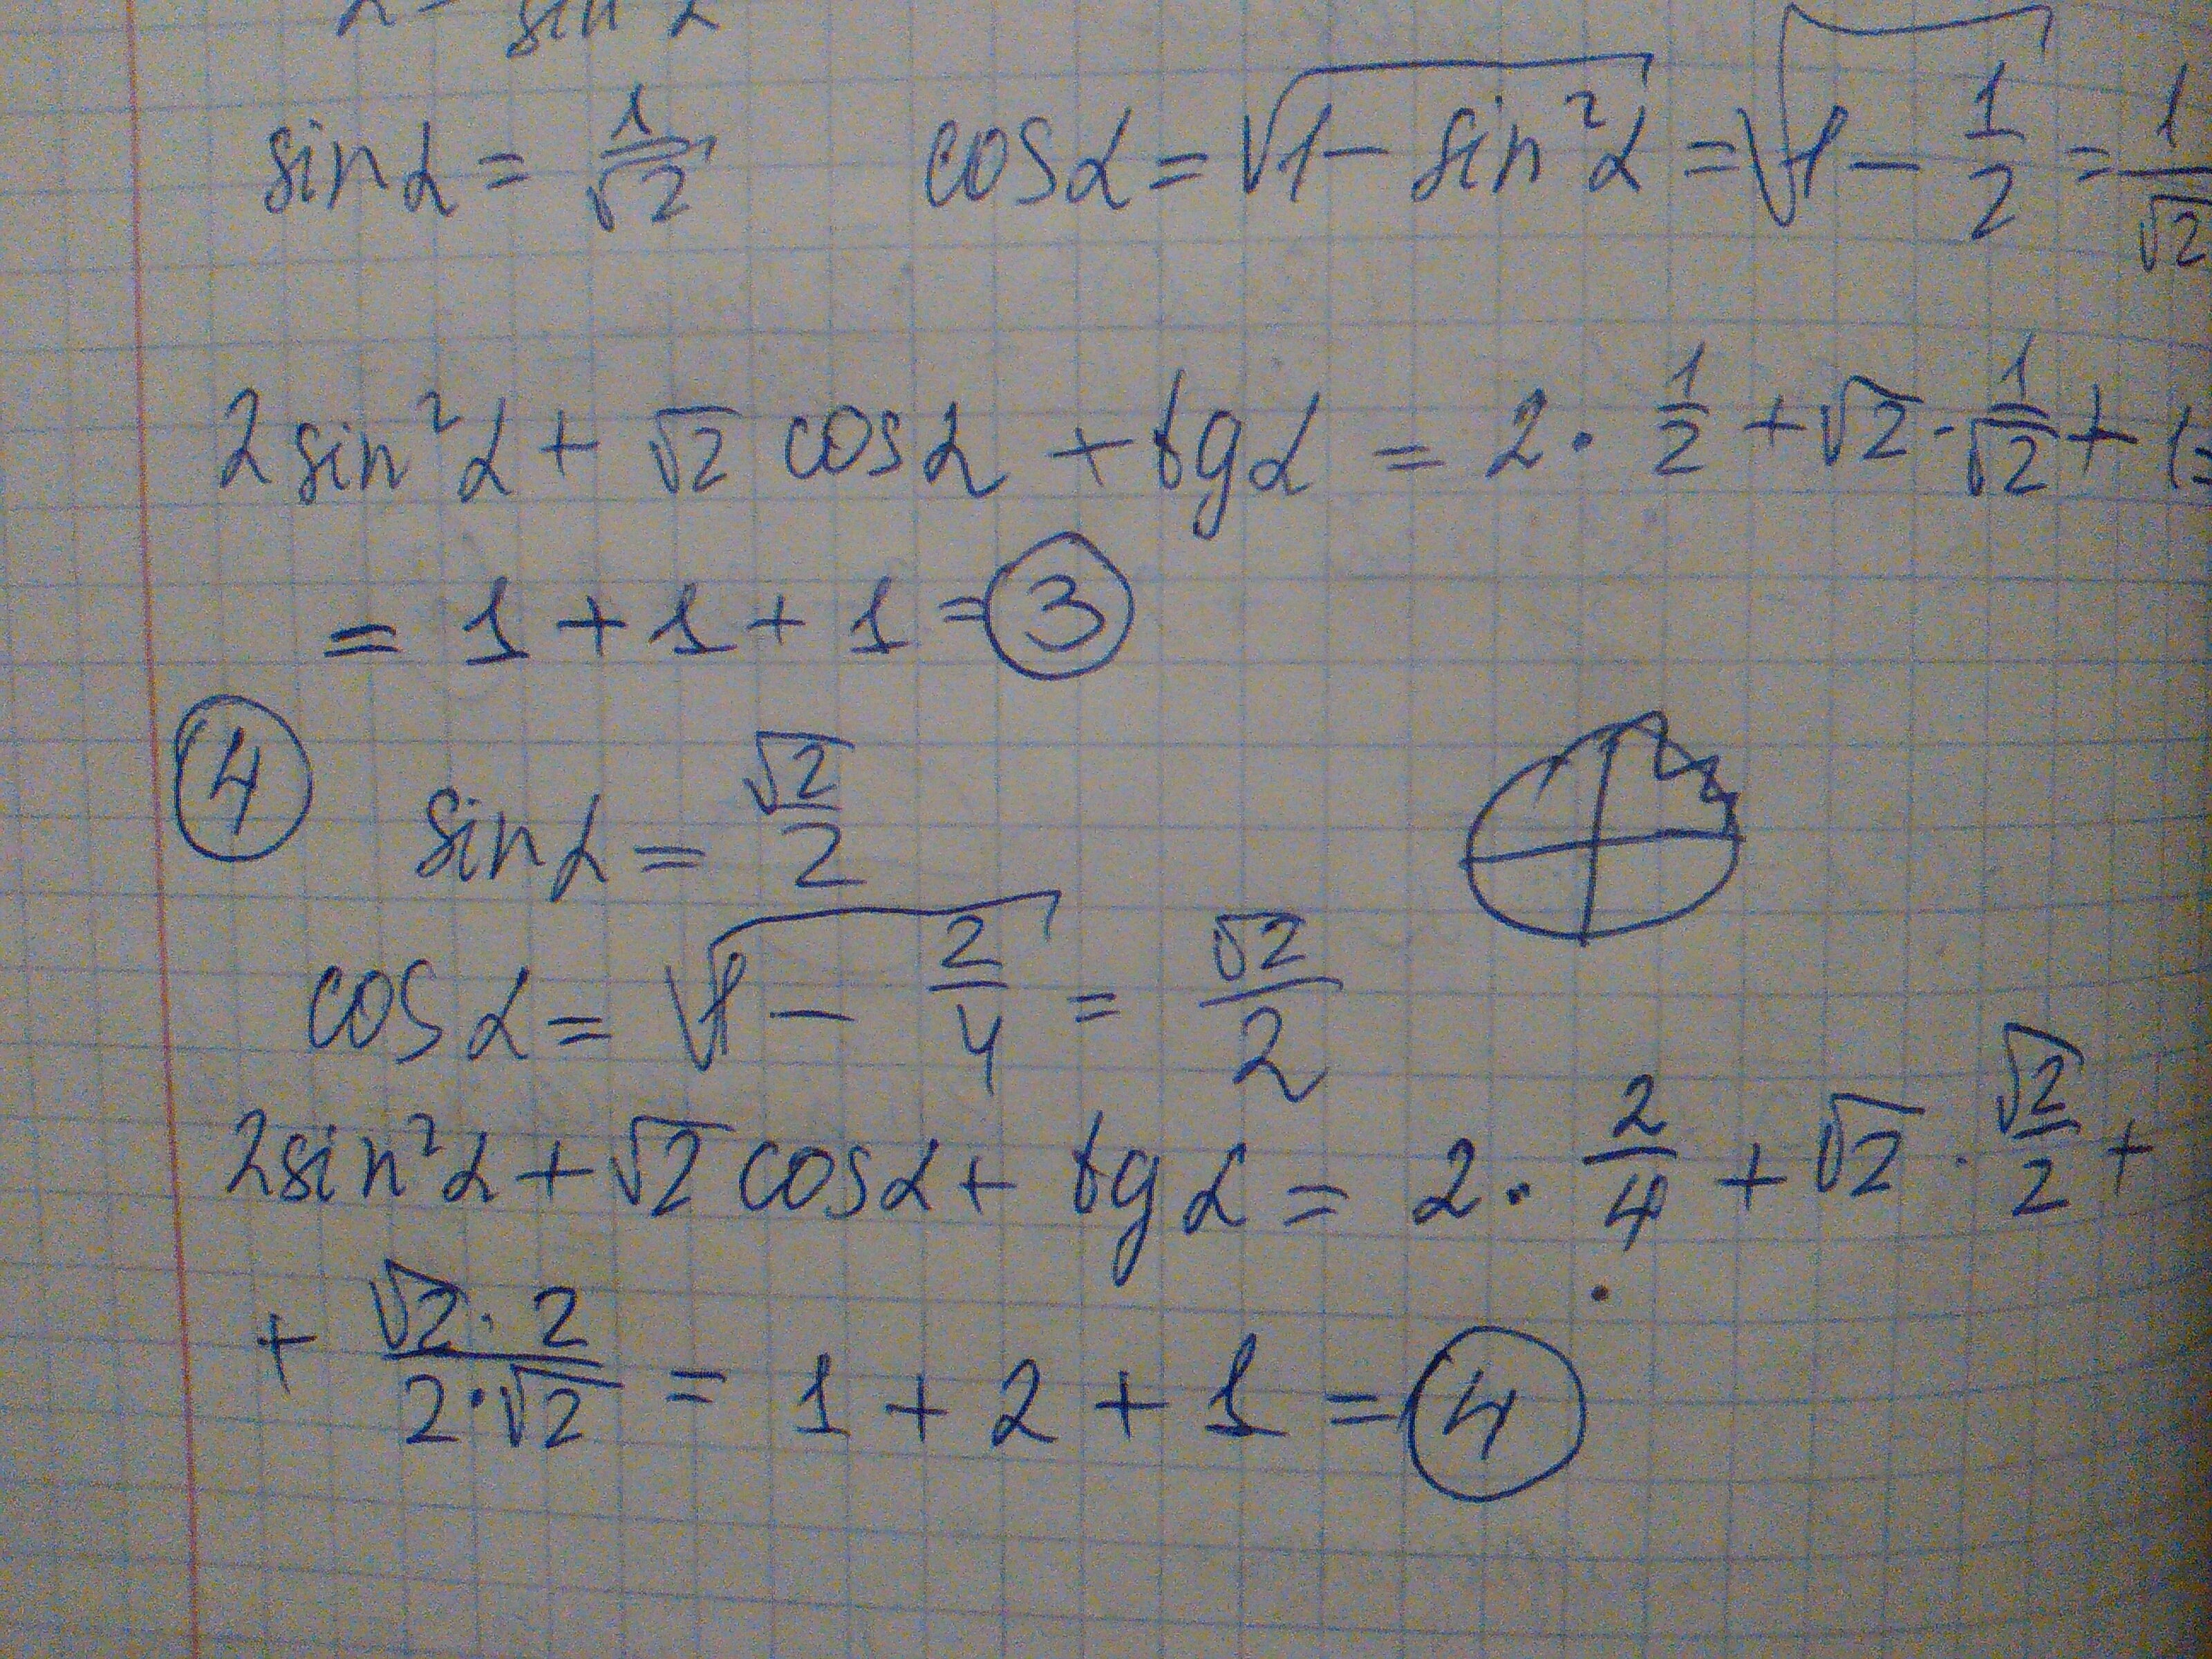 2 = sin 2
sinα = 1/√2 cosα = √(1 - sin²α) = √(1 - 1/2) = 1/√2
2sin²α + √2 cosα + tgα = 2 · 1/2 + √2 · 1/√2 + 1 =
= 1 + 1 + 1 = 3
4 sinα = √2/2
cosα = √(1 - 2/4) = √2/2
2sin²α + √2 cosα + tgα = 2 · 2/4 + √2 · √2/2 +
+ √2·2/2·√2 = 1 + 2 + 1 = 4